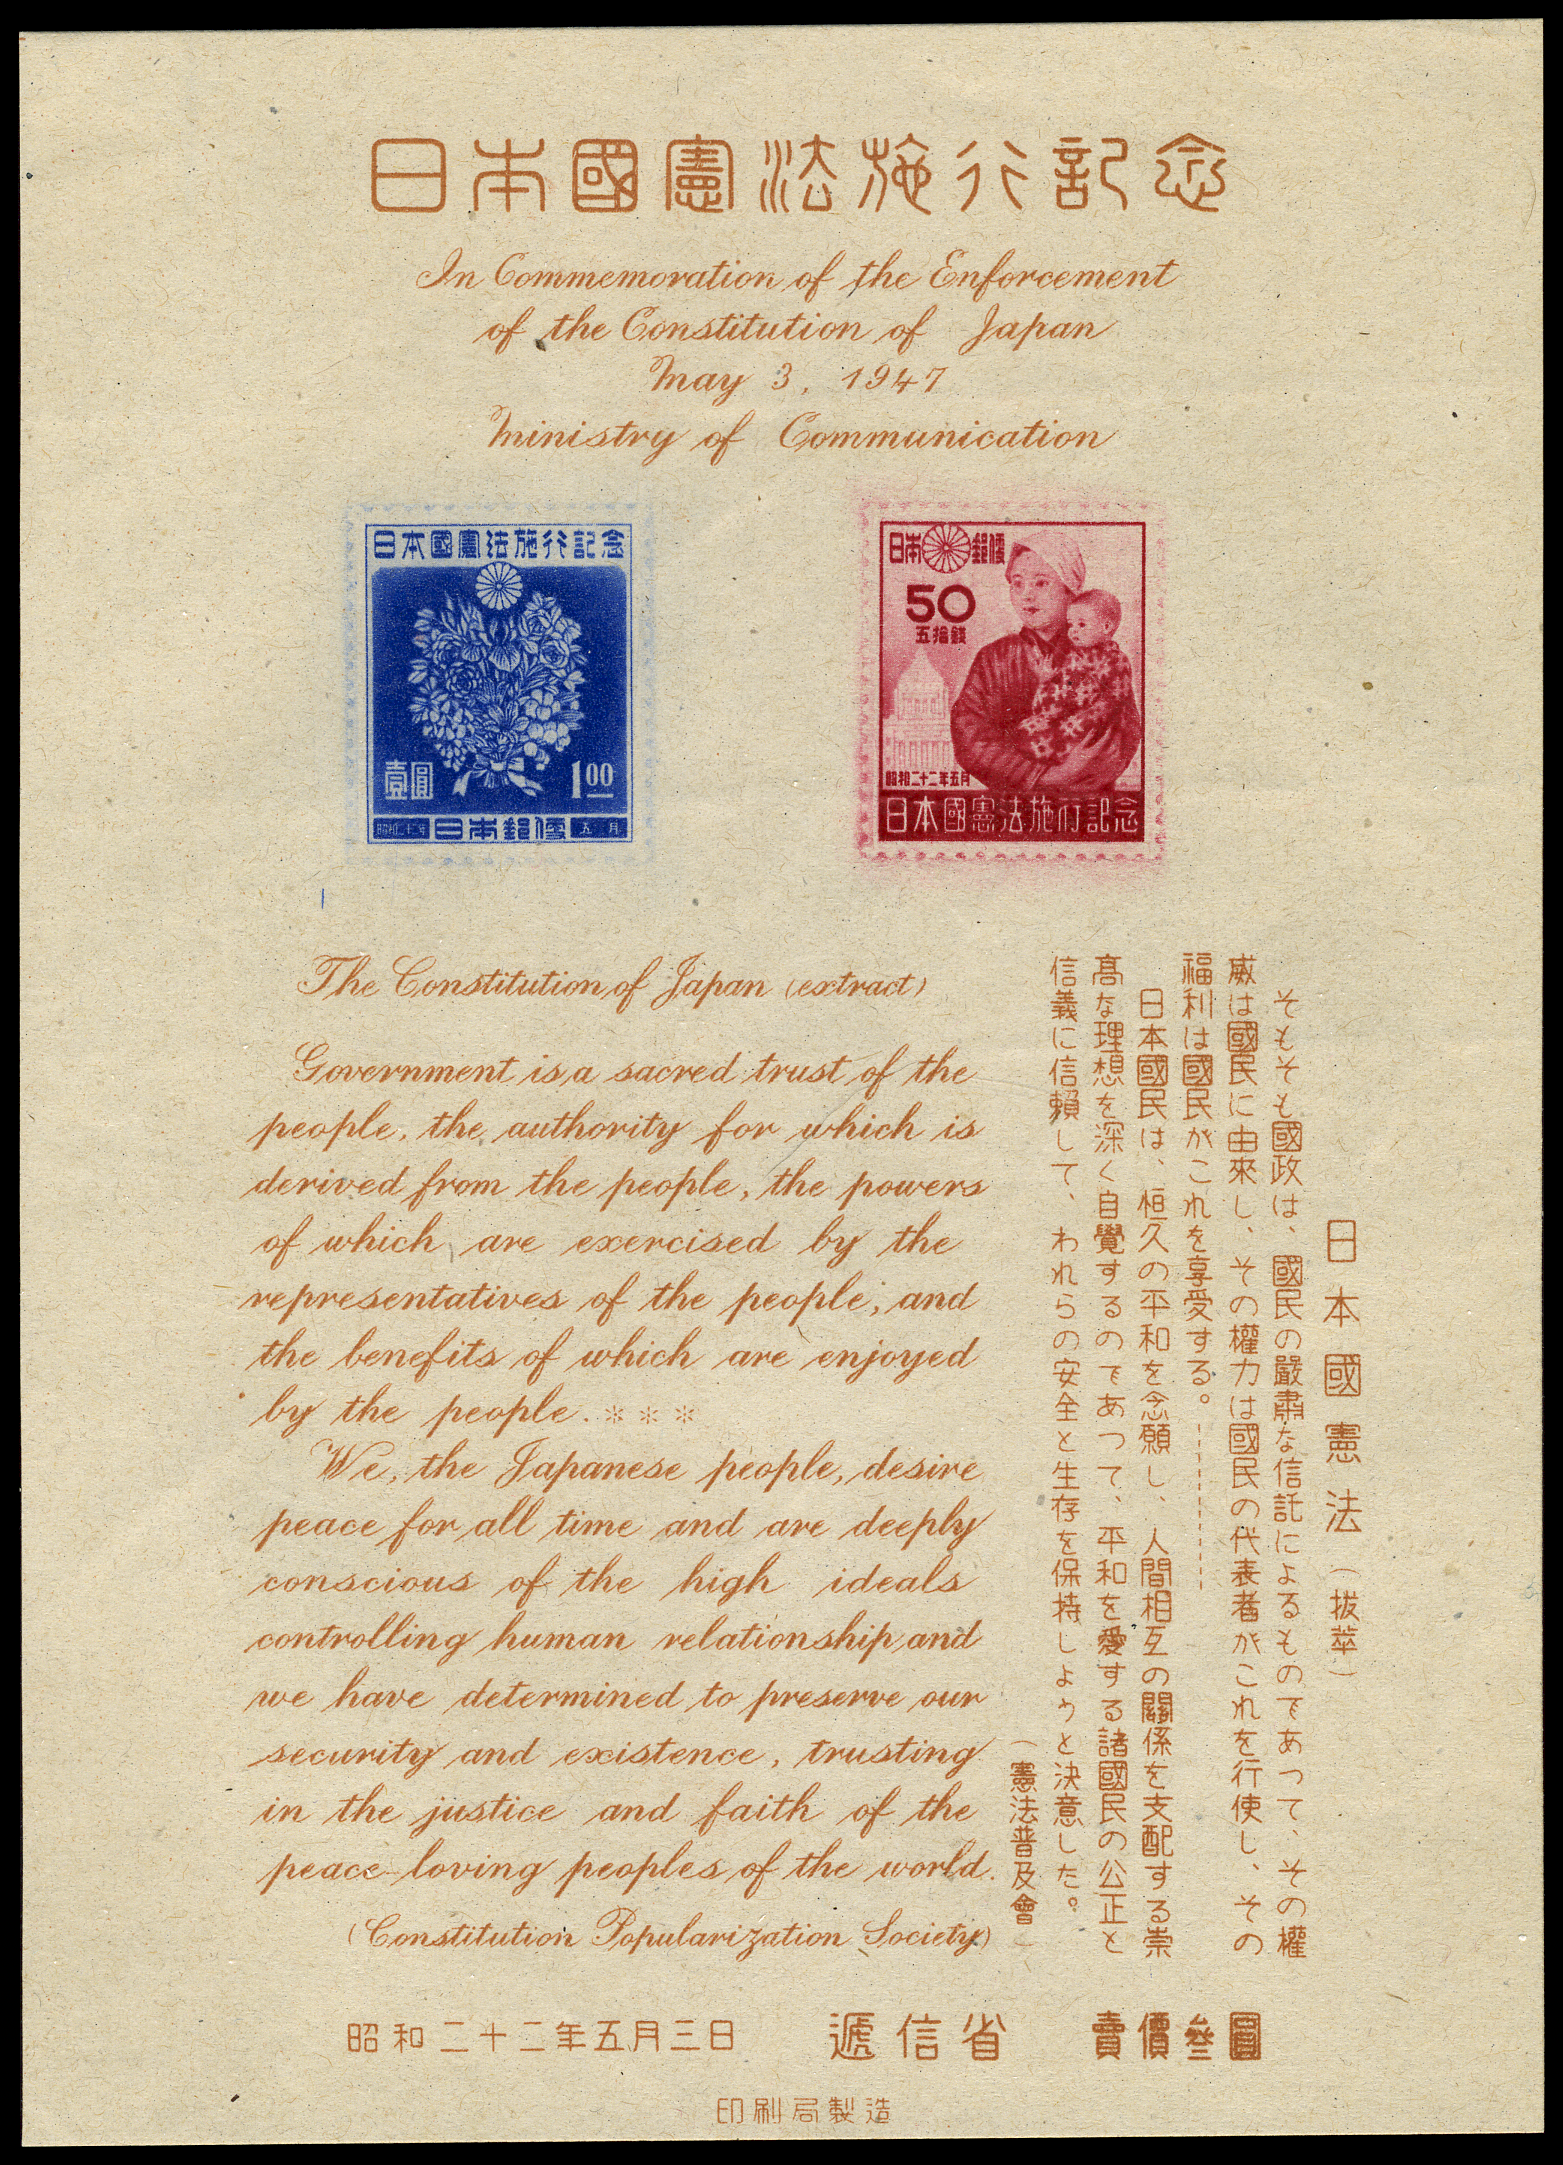 日本國憲法施行記念
In Commemoration of the Enforcement
of the Constitution of Japan
May 3, 1947
Ministry of Communication
日本國憲法施行記念
壹圓
1.00
昭和二十二年 日本郵便 五月
日本郵便
50
五拾錢
昭和二十二年五月
日本國憲法施行記念
The Constitution of Japan (extract)
Government is a sacred trust of the
people, the authority for which is
derived from the people, the powers
of which are exercised by the
representatives of the people, and
the benefits of which are enjoyed
by the people. ***
We, the Japanese people, desire
peace for all time and are deeply
conscious of the high ideals
controlling human relationship, and
we have determined to preserve our
security and existence, trusting
in the justice and faith of the
peace-loving peoples of the world.
(Constitution Popularization Society)
日本國憲法（拔萃）
そもそも國政は、國民の嚴肅な信託によるものであつて、その權
威は國民に由來し、その權力は國民の代表者がこれを行使し、その
福利は國民がこれを享受する。--------
日本國民は、恒久の平和を念願し、人間相互の關係を支配する崇
高な理想を深く自覺するのであつて、平和を愛する諸國民の公正と
信義に信賴して、われらの安全と生存を保持しようと決意した。
（憲法普及會）
昭和二十二年五月三日 遞信省 賣價參圓
印刷局製造